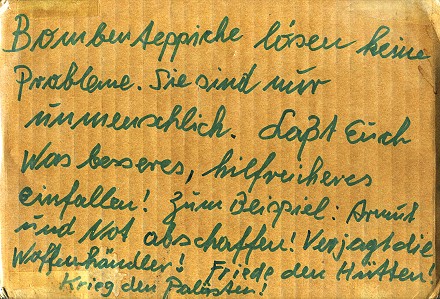 Bombenteppiche lösen keine
Probleme. Sie sind nur
unmenschlich. Laßt Euch
was besseres, hilfreicheres
einfallen! Zum Beispiel: Armut
und Not abschaffen! Verjagt die
Waffenhändler! Friede den Hütten!
Krieg den Palästen!